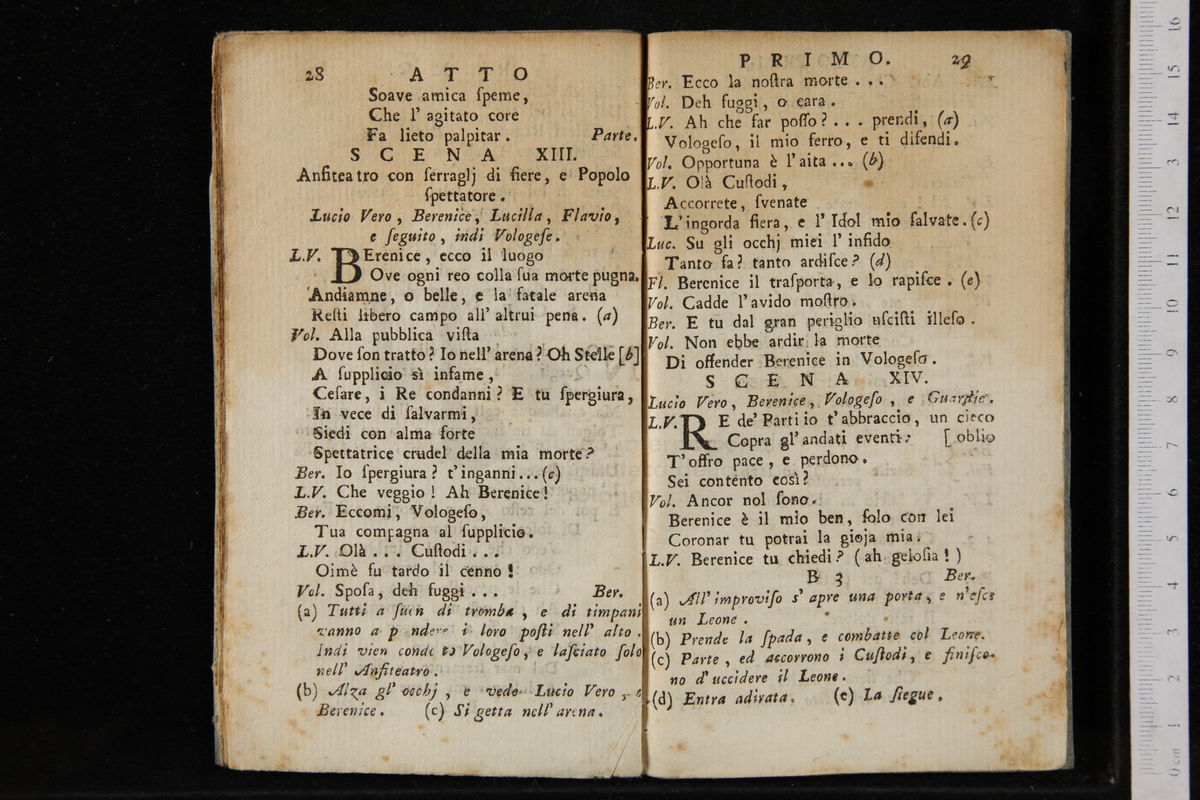 28 ATTO
Soave amica ſpeme,
Che l' agitato core
Fa lieto palpitar. Parte.
SCENA XIII.
Anfiteatro con ſerraglj di fiere, e Popolo
ſpettatore.
Lucio Vero, Berenice, Lucilla, Flavio,
e ſeguito, indi Vologeſe.
L.V. BErenice, ecco il luogo
Ove ogni reo colla ſua morte pugna.
Andiamne, o belle, e la fatale arena
Reſti libero campo all' altrui pena. (a)
Vol. Alla pubblica viſta
Dove ſon tratto? Io nell' arena? Oh Stelle [b]
A ſupplicio sì infame,
Ceſare, i Re condanni? E tu ſpergiura,
In vece di ſalvarmi,
Siedi con alma forte
Spettatrice crudel della mia morte?
Ber. Io ſpergiura? t'inganni...(c)
L.V. Che veggio! Ah Berenice!
Ber. Eccomi, Vologeſo,
Tua compagna al ſupplicio.
L.V. Olà... Cuſtodi...
Oimè fu tardo il cenno!
Vol. Spoſa, deh fuggi... Ber.
(a) Tutti a ſuon di tromba, e di timpani
vanno a p ndere i loro poſti nell' alto.
Indi vien condotto Vologeſo, e laſciato ſolo
nell' Anfiteatro.
(b) Alza gl' occhj, e vede Lucio Vero, e
Berenice. (c) Si getta nell' arena.
PRIMO. 29
Ber. Ecco la noſtra morte...
Vol. Deh fuggi, o cara.
L.V. Ah che far poſſo?... prendi, (a)
Vologeſo, il mio ferro, e ti difendi.
Vol. Opportuna è l'aita... (b)
L.V. Olà Cuſtodi,
Accorrete, ſvenate
L'ingorda fiera, e l' Idol mio ſalvate. (c)
Luc. Su gli occhj miei l' infido
Tanto fa? tanto ardiſce? (d)
Fl. Berenice il traſporta, e lo rapiſce. (e)
Vol. Cadde l'avido moſtro.
Ber. E tu dal gran periglio uſciſti illeſo.
Vol. Non ebbe ardir la morte
Di offender Berenice in Vologeſo.
SCENA XIV.
Lucio Vero, Berenice, Vologeſo, e Guardie.
L.V. RE de' Parti io t'abbraccio, un cieco
Copra gl'andati eventi: [oblio
T'offro pace, e perdono.
Sei contento così?
Vol. Ancor nol ſono.
Berenice è il mio ben, ſolo con lei
Coronar tu potrai la gioja mia.
L.V. Berenice tu chiedi? (ah geloſia!)
B 3 Ber.
(a) All' improviſo s' apre una porta, e n'eſce
un Leone.
(b) Prende la ſpada, e combatte col Leone.
(c) Parte, ed accorrono i Cuſtodi, e finiſco-
no d'uccidere il Leone.
(d) Entra adirata. (e) La ſiegue.
0 cm 1 2 3 4 5 6 7 8 9 10 11 12 13 14 15 16